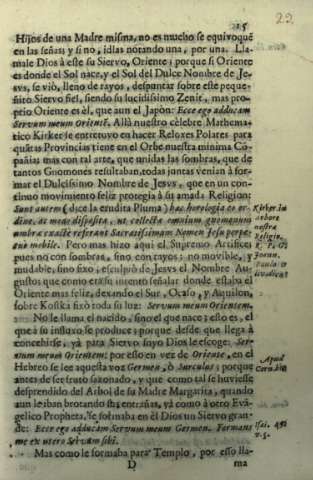 15
22
Hijos de una Madre misma, no es mucho se equivoquē
en las señas; y si no, idlas notando una, por una. Lla-
male Dios à este su Siervo, Oriente; porque si Oriente
es donde el Sol nace, y el Sol del Dulce Nombre de Je-
sus, se viò, lleno de rayos, despuntar sobre este peque-
ñito Siervo fiel, siendo su lucidissimo Zenit, mas pro-
prio Oriente es èl, que aun el Japòn: Ecce ego adducam
Servum meum orientē. Allà nuestro celebre Mathema-
tico Kirker se entretuvo en hacer Reloxes Polares para
quātas Provincias tiene en el Orbe nuestra minima Cō-
pañia; mas con tal arte, que unidas las sombras, que de
tantos Gnomones resultaban, todas juntas venian à for-
mar el Dulcissimo Nombre de Jesvs, que en un con-
tinuo movimiento feliz protegia à su amada Religion:
Sunt autem (dice la erudita Pluma) hac horologia eo or-
dine, ac modo disposita, ut collectæ omnium gnomonum
umbræ exactè referant Sacratissimum Nomen Jesu perpe-
tuò mobile. Pero mas hizo aqui el Supremo Artifice;
pues no con sombras, sino con rayos; no movible, y
mudable, sino fixo, esculpiò de Jesvs el Nombre Au-
gusto que como era su intento señalar donde estaba el
Oriente mas feliz, dexando el Sur, Ocaso, y Aquilon,
sobre Koska fixò toda su luz: Servum meum Orientem.
No le llama el nacido, sino el que nace; esto es, el
que à su influxo se produce; porque desde que llega à
concebirse, yà para Siervo suyo Dios le escoge: Ser-
vum meum Orientem: por esso en vez de Oriente, en el
Hebreo se lee aquesta voz Germen, ò Surculus; porque
antes de ser fruto sazonado, y que como tal se huviesse
desprendido del Arbol de su Madre Margarita, quando
aun se iban brotando sus entrañas, yà como à otro Evā-
gelico Propheta, se formaba en èl Dios un Siervo gran-
de: Ecce ego adducam Servum meum Germen. Formans
me ex utero Servum sibi.
Mas como se formaba para Templo, por esso lla-
D
ma
Kirker. in
arbore
nostræ
Religio.
Apud
Corn. hic
Isai. 49.
v. 5.